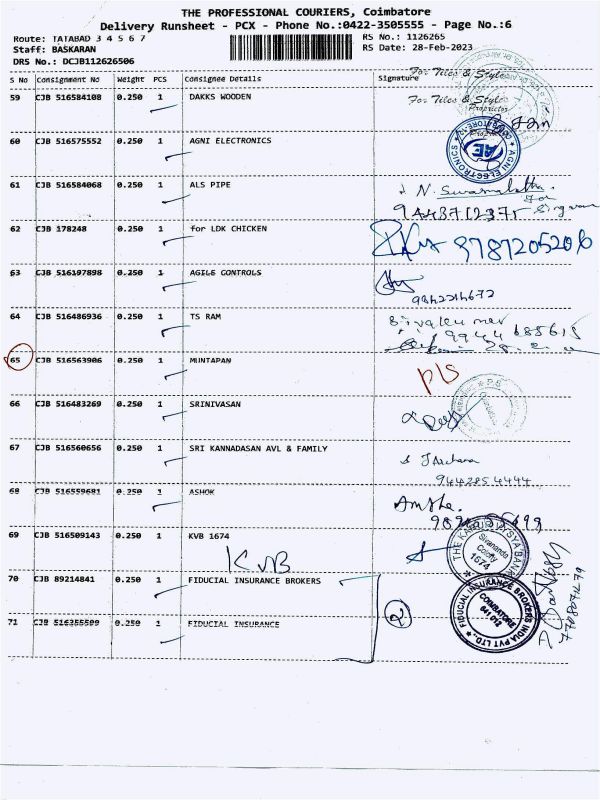 THE PROFESSIONAL COURIERS, Coimbatore
Delivery Runsheet - PCX - Phone No.:0422-3505555 - Page No.:6
Route: TATABAD 3 4 5 6 7 RS No.: 1126265
Staff: BASKARAN RS Date: 28-Feb-2023
DRS No.: DCJB112626506
S No Consignment No Weight PCS Consignee Details Signature
For Tiles & Style
59 CJB 516584108 0.250 1 DAKKS WOODEN For Tiles & Style
Proprietor
60 CJB 516575552 0.250 1 AGNI ELECTRONICS AGNI ELECTRONICS AE
61 CJB 516584068 0.250 1 ALS PIPE
9443712375
62 CJB 178248 0.250 1 for LDK CHICKEN 9787205206
63 CJB 516197898 0.250 1 AGILE CONTROLS
9842214672
64 CJB 516486936 0.250 1 TS RAM
9944685615
65 CJB 516563906 0.250 1 MINTAPAN
P/S
66 CJB 516483269 0.250 1 SRINIVASAN
67 CJB 516560656 0.250 1 SRI KANNADASAN AVL & FAMILY
9442854444
68 CJB 516559681 0.250 1 ASHOK
69 CJB 516509143 0.250 1 KVB 1674
KVB
THE KARUR VYSYA BANK
Sivananda Colony
1674
70 CJB 89214841 0.250 1 FIDUCIAL INSURANCE BROKERS
2
FIDUCIAL INSURANCE BROKERS INDIA PVT LTD.,
COIMBATORE
641 012
71 CJB 516355599 0.250 1 FIDUCIAL INSURANCE